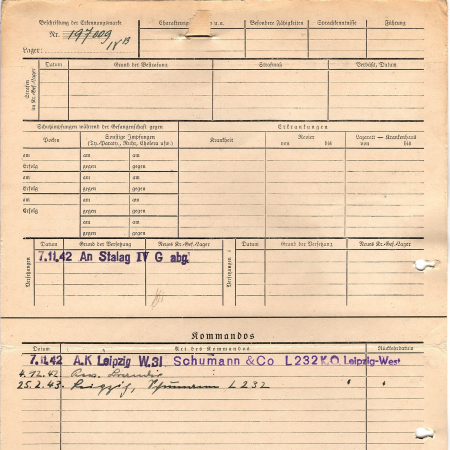 Beschriftung der Erkennungsmarke
Nr. 197009
IV B
Lager:
Besondere Fähigkeiten
Sprachkenntnisse
Führung
Strafen im Kr.-Gef.-Lager
Datum
Grund der Bestrafung
Strafmaß
Verbüßt, Datum
Schutzimpfungen während der Gefangenschaft gegen
Erkrankungen
Pocken
Sonstige Impfungen
(Ty.-Paraty., Ruhr, Cholera usw.)
Krankheit
Revier
von bis
Lazarett — Krankenhaus
von bis
am am am
Erfolg gegen gegen
am am am
Erfolg gegen gegen
am am am
Erfolg gegen gegen
am am am
gegen gegen
Versetzungen
Datum
Grund der Versetzung
Neues Kr.-Gef.-Lager
7.11.42 An Stalag IV G abg.
Versetzungen
Datum
Grund der Versetzung
Neues Kr.-Gef.-Lager
Kommandos
Datum
Art des Kommandos
Rückkehrdatum
7.11.42 A.K Leipzig W.31 Schumann & Co L232 K.O Leipzig-West
4.12.42
25.2.43. Leipzig, L 232 " "